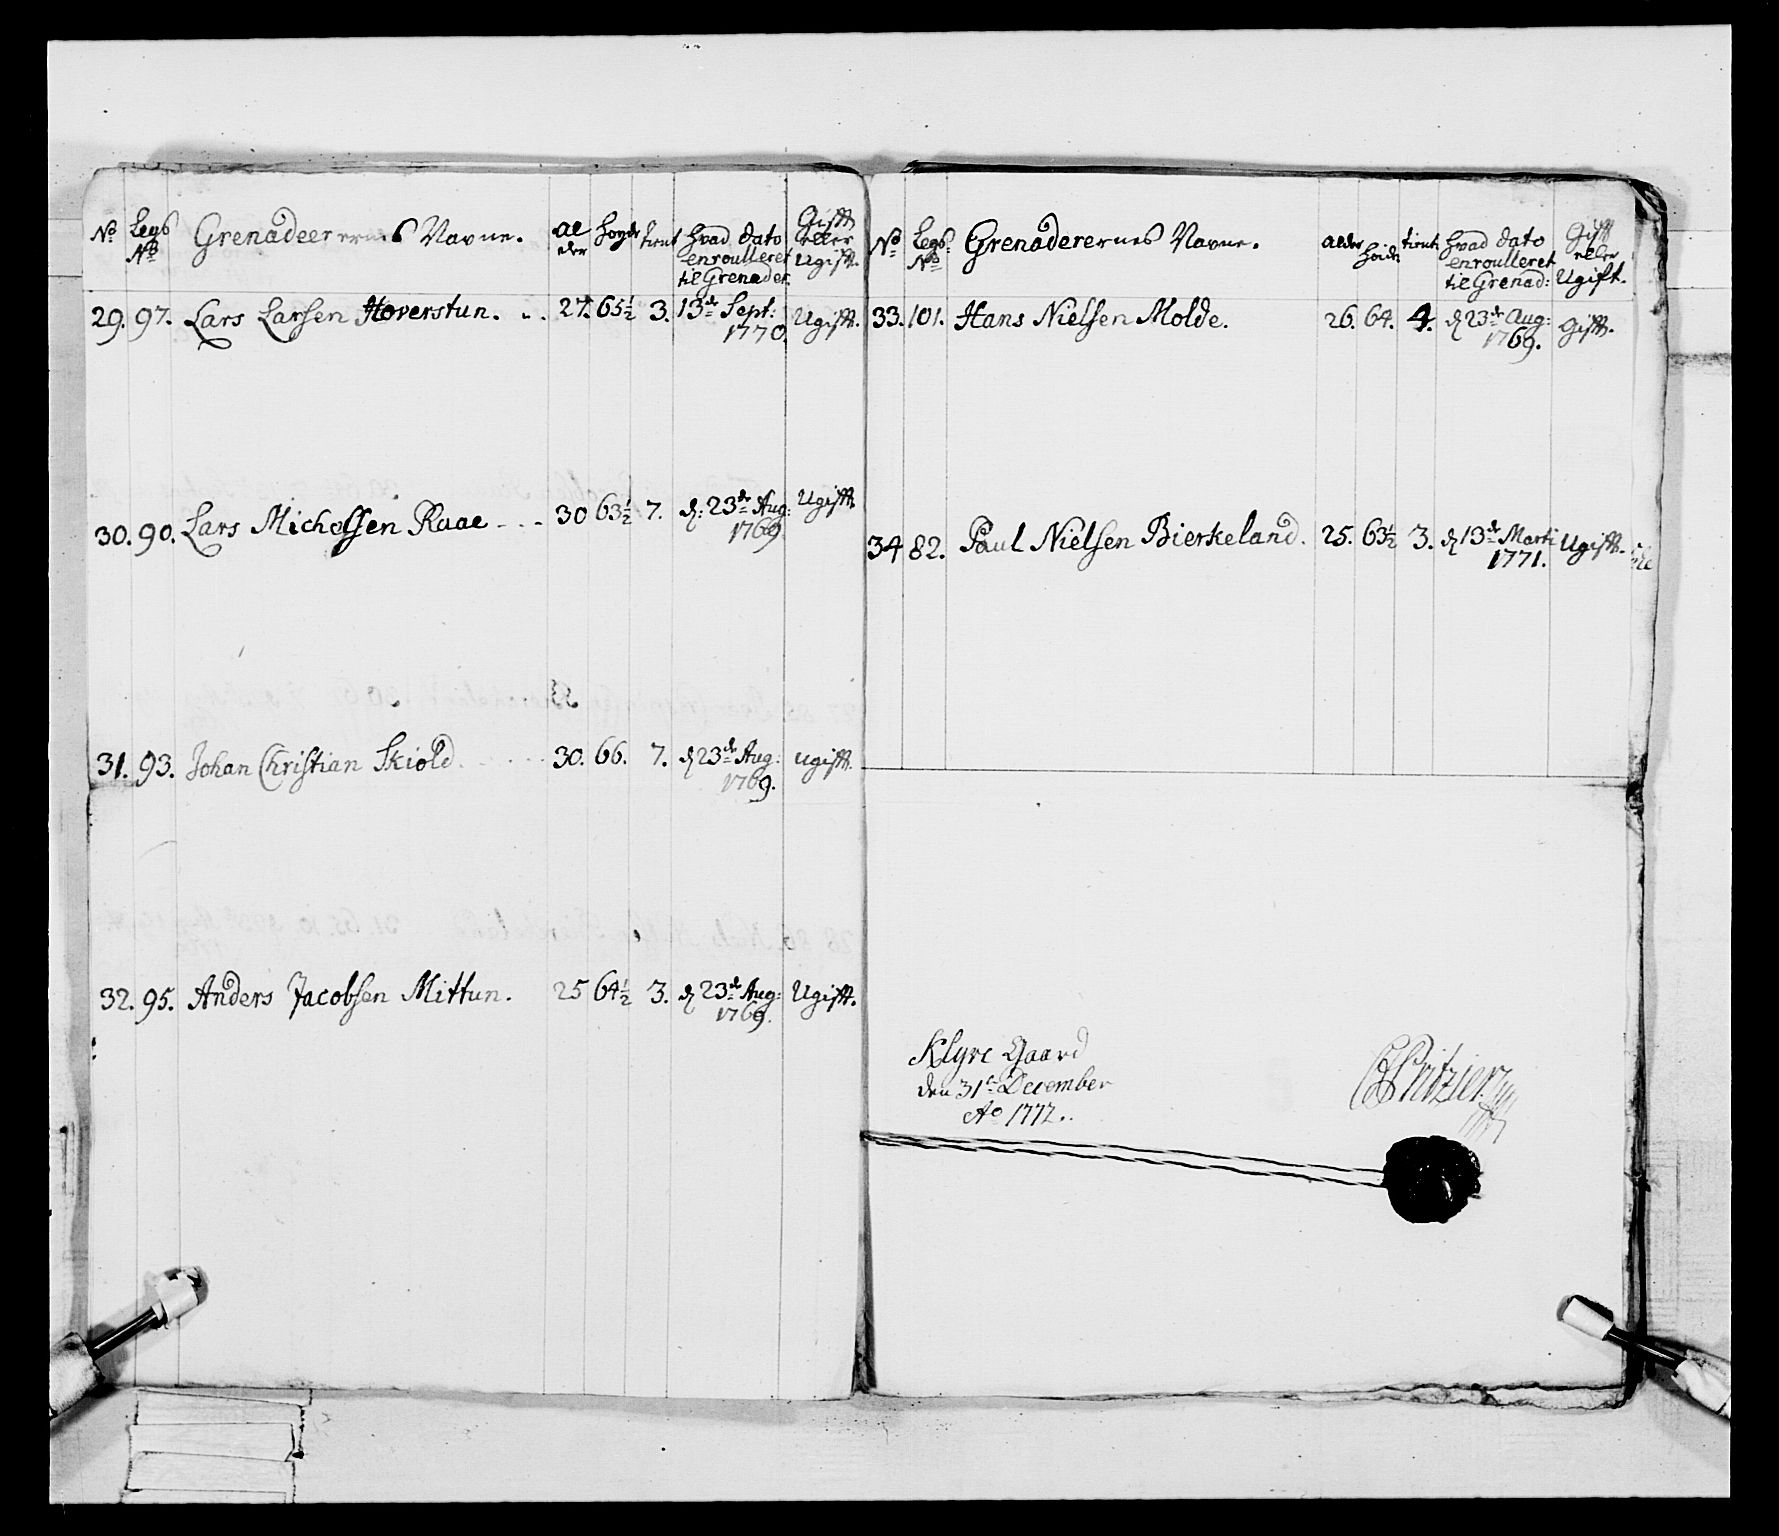 No Legs No Grenadeerernes Navne. Al der Høyde tient hvad dato enroulleret til Grenader. Gifft eller Ugifft.
29. 97. Lars Larsen Hoverstun. 27. 65½ 3. 13de Sept: 1770. Ugifft.
30. 90. Lars Michelsen Raae 30 63½ 7. d: 23de Aug: 1769. Ugifft.
31. 93. Johan Christian Skiold. 30. 66. 7. d 23de Aug: 1769. ugifft.
32. 95. Anders Jacobsen Mittun. 25 64½ 3. d 23de Aug: 1769. Ugifft.
No Legs No Grenaderernes Navne. alder høide tient hvad dato enroulleret til Grenad: Gifft eller Ugift.
33. 101. Hans Nielsen Molde. 26. 64. 4. d 23de Aug: 1769. Gifft.
34 82. Paul Nielsen Bierkeland. 25. 63½ 3. d 13de Marti 1771. Ugifft.
Gaard
den 31te December
Ao 1772.